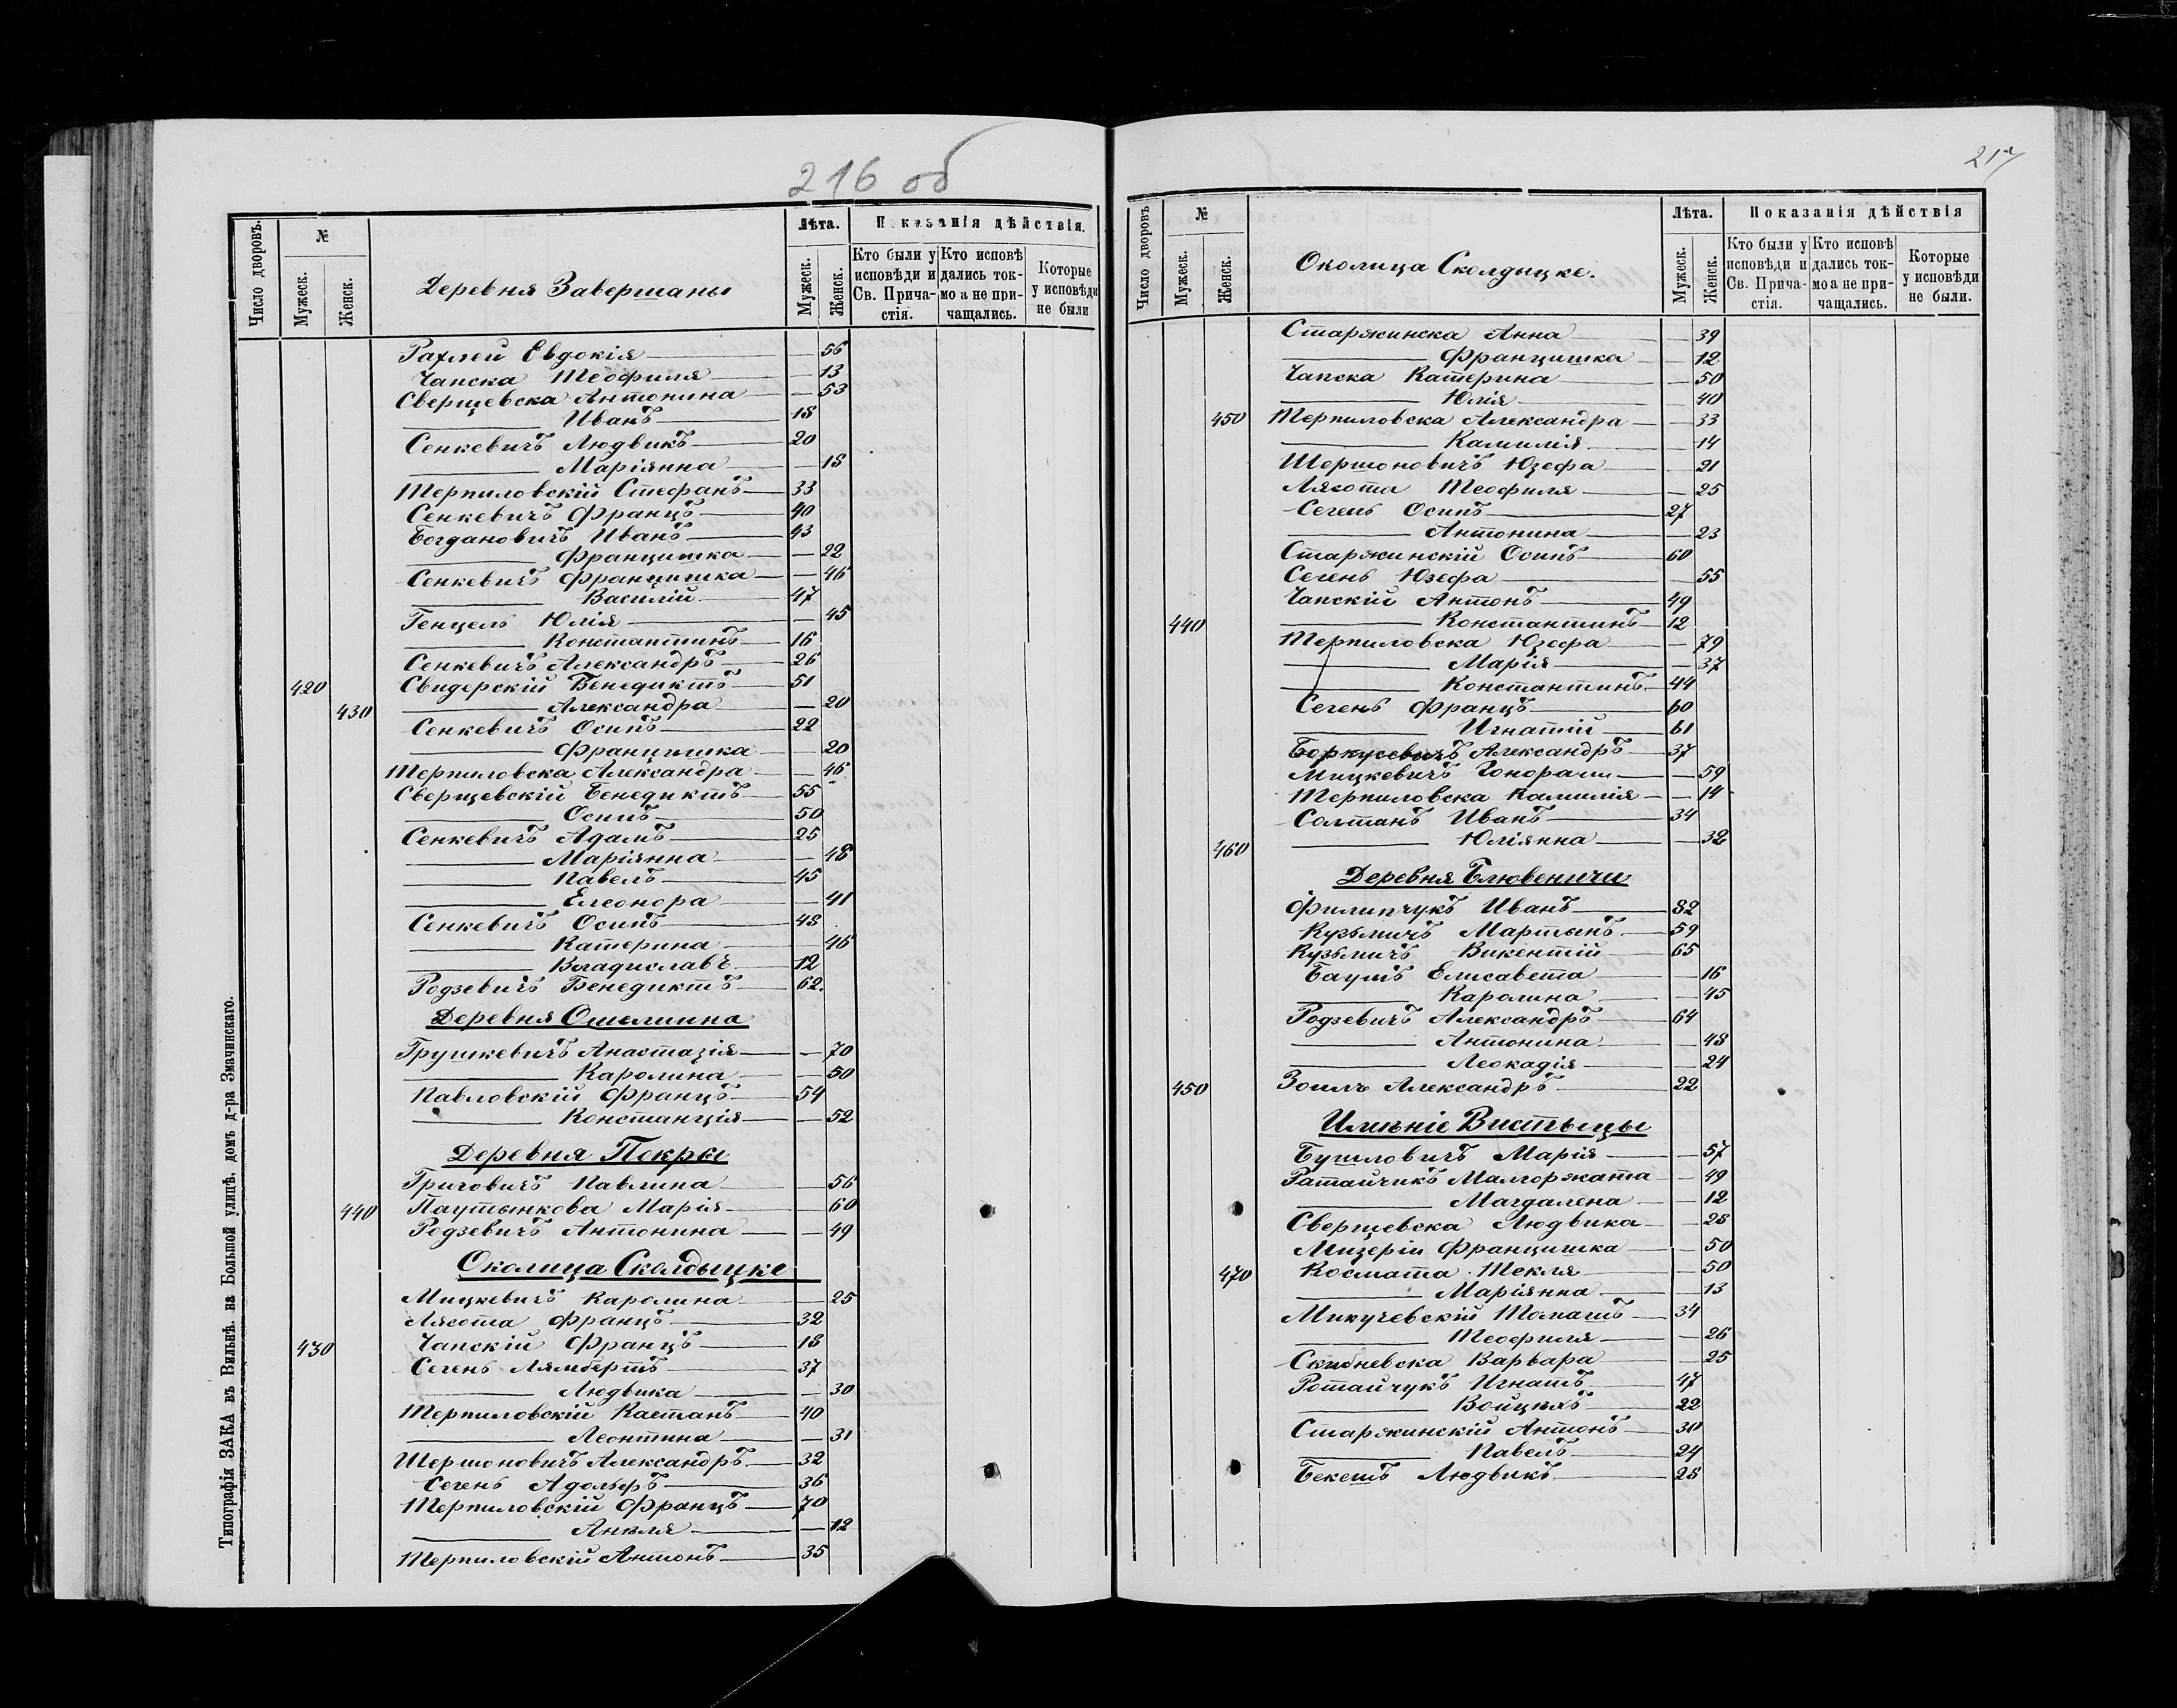 216 об
Число дворовъ.
№
Мужеск.
Женск.
Деревня Завершаны
Лѣта.
Мужеск.
Женск.
Показанія дѣйствія.
Кто были у исповѣди и Св. Причастія.
Кто исповѣдались токмо а не причащались.
Которые у исповѣди не были
Рахлей Евдокія — 56
Чапска Теофиля — 13
Сверщевска Антонина — 53
— Иванъ — 18
Сенкевичъ Людвикъ — 20
— Маріянна — 18
Терпиловскій Стефанъ — 33
Сенкевичъ Францъ — 40
Богдановичъ Иванъ — 43
— Францишка — 22
Сенкевичъ Францишка — 46
— Василій — 47
Генцель Юлія — 45
— Константинъ — 16
Сенкевичъ Александръ — 26
420 Свидерскій Бенедиктъ — 51
430 — Александра — 20
Сенкевичъ Осипъ — 22
— Францишка — 20
Терпиловска Александра — 46
Сверщевскій Бенедиктъ — 55
— Осипъ — 50
Сенкевичъ Адамъ — 25
— Маріянна — 48
— Павелъ — 45
— Елеонора — 41
Сенкевичъ Осипъ — 48
— Катерина — 46
— Владиславъ — 12
Родзевичъ Бенедиктъ — 62.
Деревня
Грушкевичъ Анастазія — 70
— Каролина — 50
Павловскій Францъ — 54
— Констанція — 52
Деревня Покры
Григовичъ Павлина — 56
440 Паутынкова Марія — 60
Родзевичъ Антонина — 49
Околица Сколдыцке
Мицкевичъ Каролина — 25
Лясота Францъ — 32
430 Чапскій Францъ — 18
Сегень Лямбертъ — 37
— Людвика — 30
Терпиловскій Каетанъ — 40
— Леонтина — 31
Шершоновичъ Александръ — 32
Сегень Адольфъ — 36
Терпиловскій Францъ — 70
— Анѣля — 12
Терпиловскій Антонъ — 35
Типографія ЗАКА въ Вильнѣ, на Большой улицѣ, домъ д-ра Змачинскаго.
217
Число дворовъ
№
Мужеск.
Женск.
Околица Сколдыцке.
Лѣта.
Мужеск.
Женск.
Показанія дѣйствія
Кто были у исповѣди и Св. Причастія.
Кто исповѣдались токмо а не причащались.
Которые у исповѣди не были.
Старжинска Анна — 39
— Францишка — 12
Чапска Катерина — 50
— Юлія — 40
450 Терпиловска Александра — 33
— Камилія — 14
Шершоновичъ Юзефа — 21
Лясота Теофиля — 25
Сегень Осипъ — 27
— Антонина — 23
Старжинскій Осипъ — 60
Сегень Юзефа — 55
Чапскій Антонъ — 49
440 — Константинъ — 12
Терпиловска Юзефа — 79
— Марія — 37
— Константинъ — 44
Сегень Францъ — 60
— Игнатій — 61
Боркусевичъ Александръ — 37
Мицкевичъ — 59
Терпиловска Камилія — 14
Солтанъ Иванъ — 34
460 — Юліянна — 32
Деревня Блювеничи
Филипчукъ Иванъ — 82
Кузьмичъ Мартынъ — 59
Кузьмичъ Викентій — 65
Баумъ Елисавета — 16
— Каролина — 45
Родзевичъ Александръ — 64
— Антонина — 48
— Леокадія — 24
450 Зоилъ Александръ — 22
Имѣніе Вистыцы
Бушловичъ Марія — 57
Ратайчикъ Малгоржата — 49
— Магдалена — 12
Сверщевска Людвика — 28
Мизерій Францишка — 50
470 Космата Текля — 50
— Маріянна — 13
Микучевскій Томашъ — 34
— Теофиля — 26
Скибневска Варвара — 25
Ротайчукъ Игнатъ — 47
— Войцѣхъ — 22
Старжинскій Антонъ — 30
— Павелъ — 24
Бекешъ Людвикъ — 28